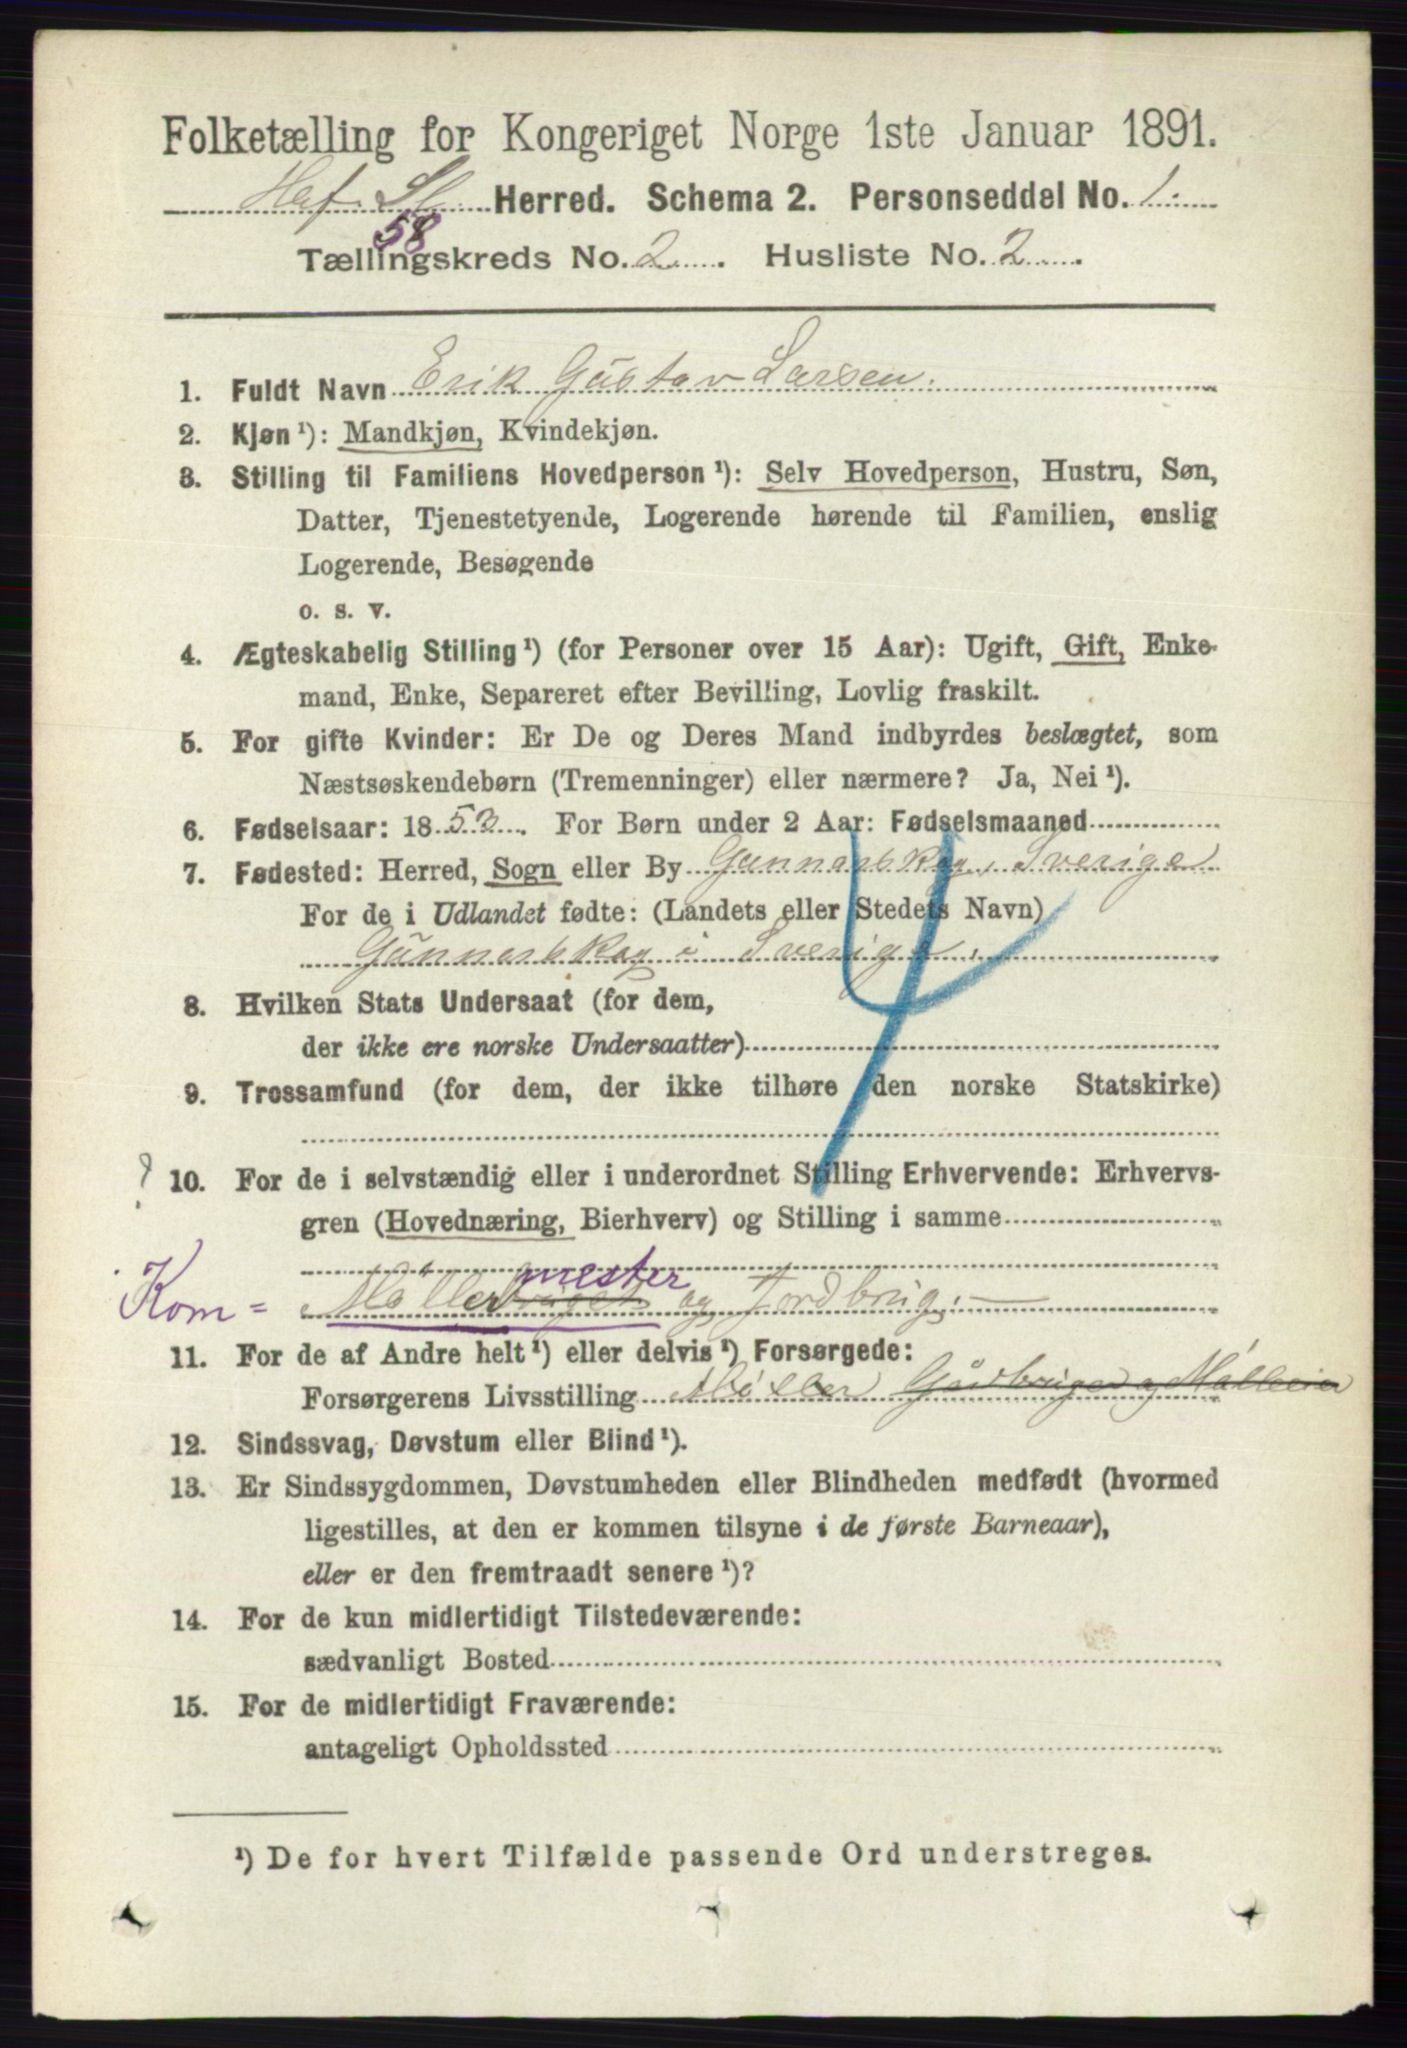 Folketælling for Kongeriget Norge 1ste Januar 1891.
Herred. Schema 2. Personseddel No. 1.
58
Tællingskreds No. 2. Husliste No. 2.
1. Fuldt Navn Erik Gustav Larsen.
2. Kjøn ¹): Mandkjøn, Kvindekjøn.
3. Stilling til Familiens Hovedperson ¹): Selv Hovedperson, Hustru, Søn,
Datter, Tjenestetyende, Logerende hørende til Familien, enslig
Logerende, Besøgende
o. s. v.
4. Ægteskabelig Stilling ¹) (for Personer over 15 Aar): Ugift, Gift, Enke-
mand, Enke, Separeret efter Bevilling, Lovlig fraskilt.
5. For gifte Kvinder: Er De og Deres Mand indbyrdes beslægtet, som
Næstsøskendebørn (Tremenninger) eller nærmere? Ja, Nei ¹).
6. Fødselsaar: 1853. For Børn under 2 Aar: Fødselsmaaned
7. Fødested: Herred, Sogn eller By Gunnarskog, Sverige
For de i Udlandet fødte: (Landets eller Stedets Navn)
Gunnarskog i Sverige.
8. Hvilken Stats Undersaat (for dem,
der ikke ere norske Undersaatter)
9. Trossamfund (for dem, der ikke tilhøre den norske Statskirke)
? 10. For de i selvstændig eller i underordnet Stilling Erhvervende: Erhvervs-
gren (Hovednæring, Bierhverv) og Stilling i samme
mester
Kom = Møller og Jordbrug.
11. For de af Andre helt ¹) eller delvis ¹) Forsørgede:
Forsørgerens Livsstilling Møller
12. Sindssvag, Døvstum eller Blind ¹).
13. Er Sindssygdommen, Døvstumheden eller Blindheden medfødt (hvormed
ligestilles, at den er kommen tilsyne i de første Barneaar),
eller er den fremtraadt senere ¹)?
14. For de kun midlertidigt Tilstedeværende:
sædvanligt Bosted
15. For de midlertidigt Fraværende:
antageligt Opholdssted
¹) De for hvert Tilfælde passende Ord understreges.